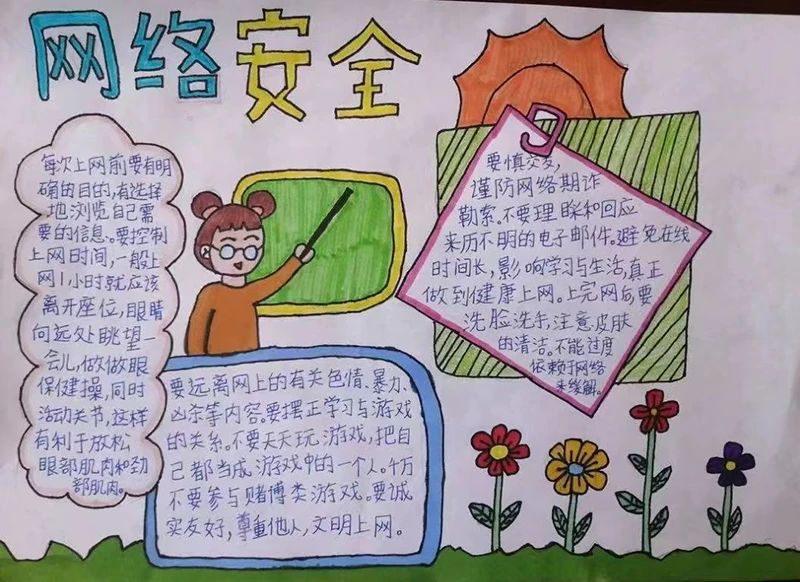 网络安全
每次上网前要有明
确的目的,有选择
地浏览自己需
要的信息。要控制
上网时间,一般上
网1小时就应该
离开座位,眼睛
向远处眺望一
会儿,做做眼
保健操,同时
活动关节,这样
有利于放松
眼部肌肉和劲
部肌肉。
要慎交友,
谨防网络期诈
勒索。不要理睬和回应
来历不明的电子邮件。避免在线
时间长,影响学习与生活,真正
做到健康上网。上完网后,要
洗脸洗手,注意皮肤
的清洁。不能过度
依赖于网络
来缓解。
要远离网上的有关色情、暴力、
凶杀等内容。要摆正学习与游戏
的关系。不要天天玩游戏,把自
己都当成游戏中的一个人。千万
不要参与赌博类游戏。要诚
实友好,尊重他人,文明上网。